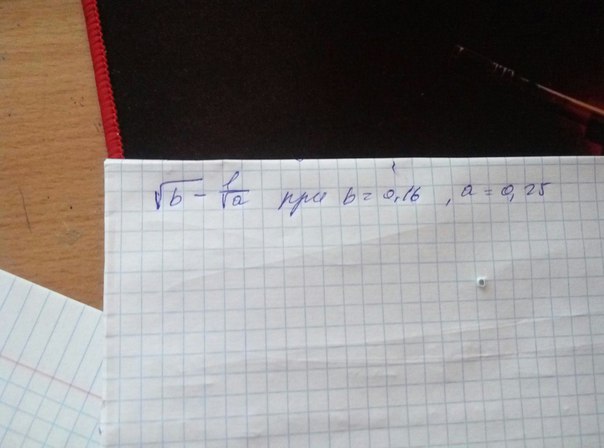 √b - 1/√a при b = 0,16 , a = 0,25